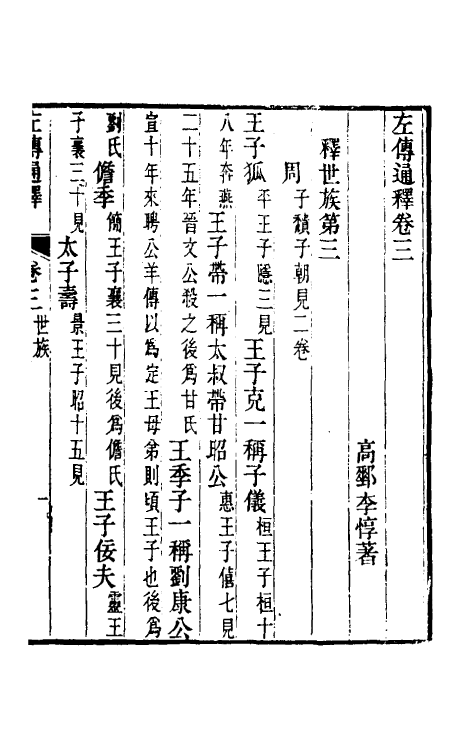 左傳通釋卷三
高郵李惇著
釋世族第三
周 子頹子朝見二卷
王子狐 平王子隱三見 王子克一稱子儀 桓王子桓十
八年奔燕 王子帶一稱太叔帶甘昭公 惠王子僖七見
二十五年晉文公殺之後爲甘氏 王季子一稱劉康公
宣十年來聘公羊傳以爲定王母弟則頃王子也後爲
劉氏 儋季 簡王子襄三十見後爲儋氏 王子佞夫 靈王
子襄三十見 太子壽 景王子昭十五見
左傳通釋 卷三 世族 一